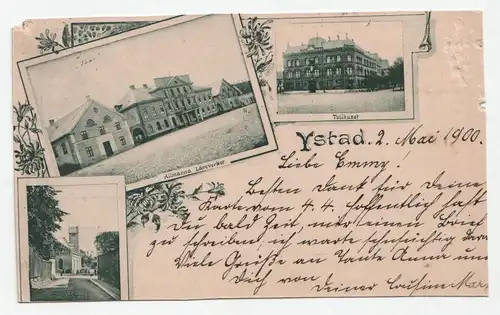 Allmänna Läroverket
Tullhuset
Ystad. 2. Mai 1900.
Liebe Emmy!
Besten Dank für Deine
Karte vom 4.4. Hoffentlich hast
Du bald Zeit, mir einen Brief
zu schreiben, ich warte sehnsüchtig
Viele Grüße an Tante Anna und
Dich von
Deiner Cousine